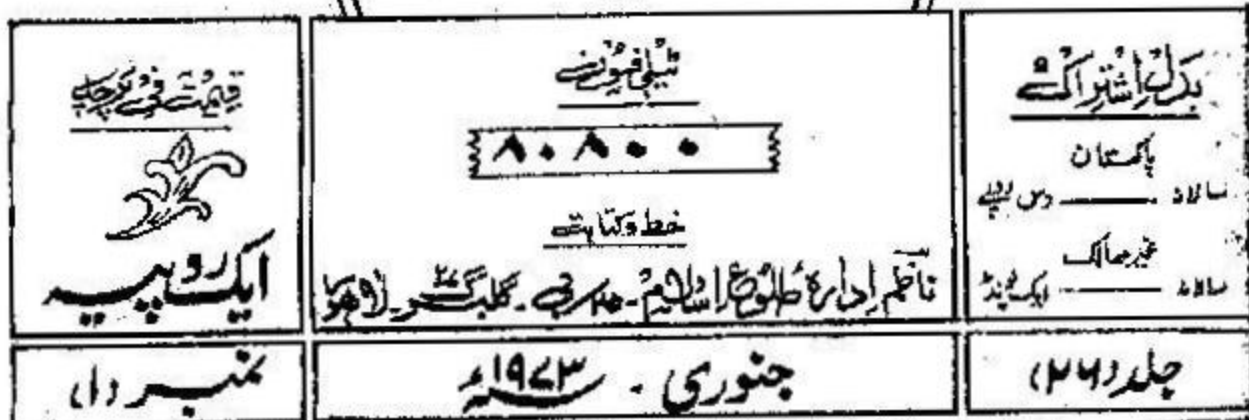 بدلِ اشتراک
پاکستان
سالانہ ——— دس روپے
غیر ممالک
سالانہ ——— ایک پونڈ
ٹیلیفون
۸۰۸۰۰
خط و کتابت
ناظم ادارہ طلوعِ اسلام۔ ۲۵ بی۔ گلبرگ ۲۔ لاہور
قیمت فی پرچہ
ایک روپیہ
جلد (۲۶)
جنوری ۔ ۱۹۷۳ء
نمبر (۱)